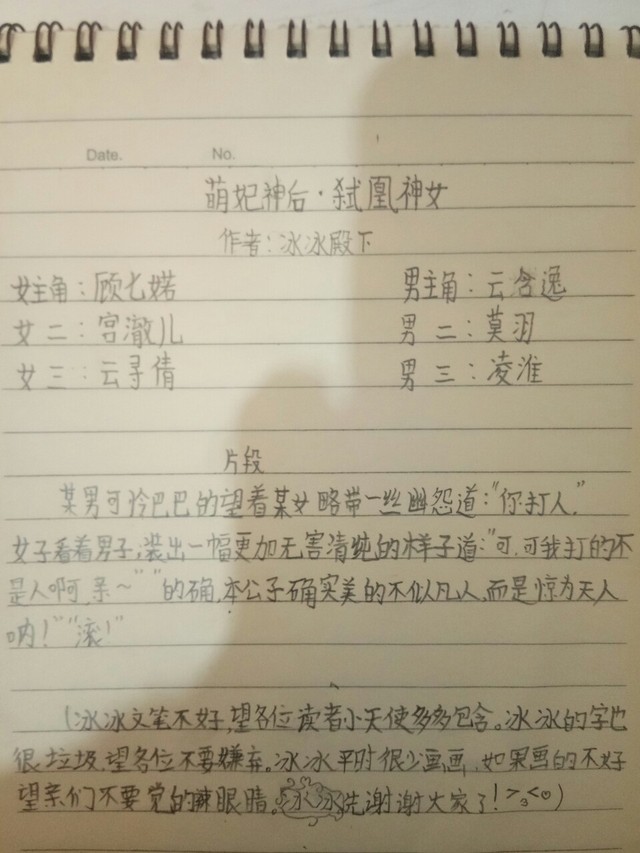 Date. No.
萌妃神后·弑凰神女
作者:冰冰殿下
女主角:顾七婼 男主角:云含逸
女二:宫澈儿 男二:莫羽
女三:云寻倩 男三:凌淮
片段
某男可怜巴巴的望着某女略带一丝幽怨道:“你打人”
女子看着男子,装出一幅更加无害清纯的样子道:“可,可我打的不
是人啊,亲~”“的确,本公子确实美的不似凡人,而是惊为天人
呐!”“滚!”
(冰冰文笔不好,望各位读者小天使多多包含。冰冰的字也
很垃圾,望各位不要嫌弃。冰冰平时很少画画,如果画的不好
望亲们不要觉的辣眼睛。冰冰先谢谢大家了!>3<♡)